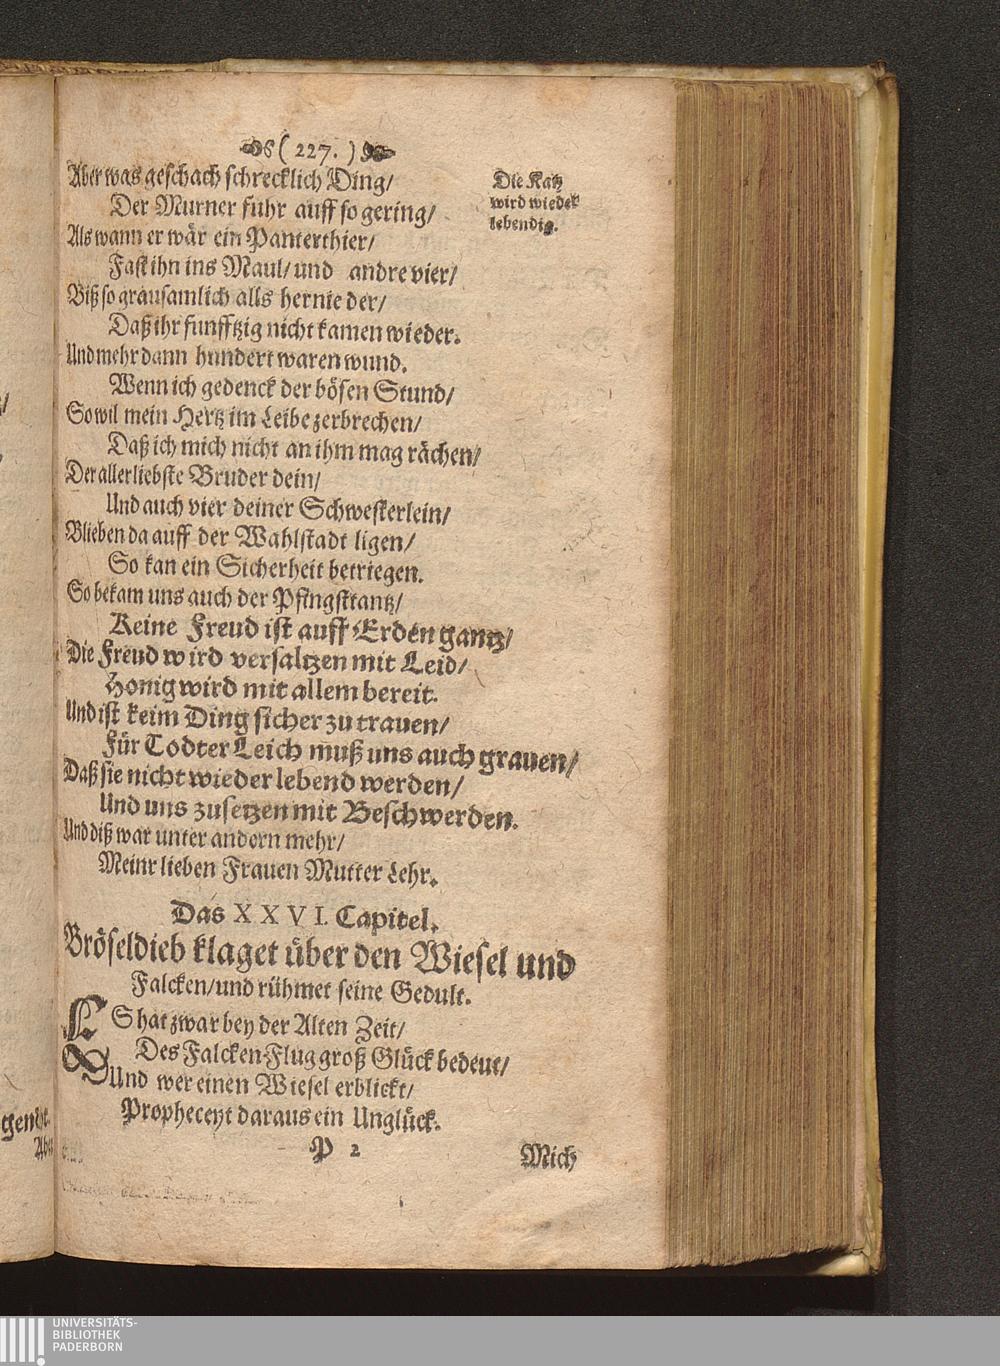 ( 227. )
Aber was geschach schrecklich Ding/
Die Katz
wird wieder
lebendig.
Der Murner fuhr auff so gering/
Als wann er wär ein Panterthier/
Fast ihn ins Maul/ und andre vier/
Biß so grausamlich alls hernieder/
Daß ihr funfftzig nicht kamen wieder.
Und mehr dann hundert waren wund.
Wenn ich gedenck der bösen Stund/
So wil mein Hertz im Leibe zerbrechen/
Daß ich mich nicht an ihm mag rächen/
Der allerliebste Bruder dein/
Und auch vier deiner Schwesterlein/
Blieben da auff der Wahlstadt ligen/
So kan ein Sicherheit betriegen.
So bekam uns auch der Pfingsttantz/
Keine Freud ist auff Erden gantz/
Die Freud wird versaltzen mit Leid/
Honig wird mit allem bereit.
Und ist keim Ding sicher zu trauen/
Für Todter Leich muß uns auch grauen/
Daß sie nicht wieder lebend werden/
Und uns zusetzen mit Beschwerden.
Und diß war unter andern mehr/
Meinr lieben Frauen Mutter Lehr.
Das XXVI. Capitel.
Bröseldieb klaget über den Wiesel und
Falcken/ und rühmet seine Gedult.
ES hat zwar bey der Alten Zeit/
Des Falcken-Flug groß Glück bedeut/
Und wer einen Wiesel erblickt/
Propheceyt daraus ein Unglück.
P 2
Mich
UNIVERSITÄTS-
BIBLIOTHEK
PADERBORN